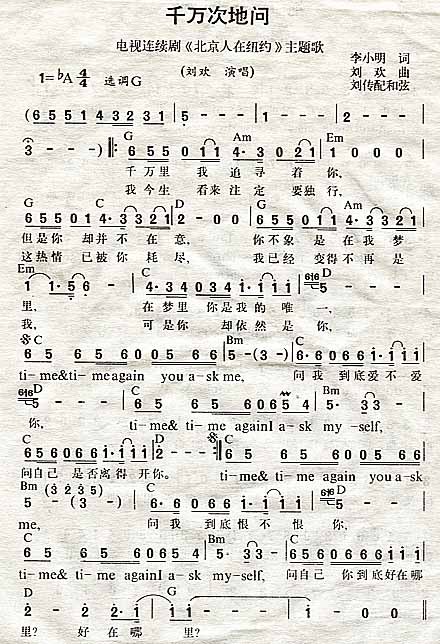 千万次地问
电视连续剧《北京人在纽约》主题歌
李小明 词
1=♭A 4/4 选调G (刘欢 演唱) 刘 欢 曲
刘传配和弦
(65 5 6 5 1 4 3 2 3 1
G Am Em
3 - -) 6 5 5 0 1 1 4· 3 0 2 1 1 0 0 0
千万里 我 追寻 着 你,
我今生 看来 注定 要独行,
G C D Am
6 5 5 0 1 4· 3 3 2 1 2 - 0 0 6 5 5 0 1 1 4· 3 3 2 1
但是你 却并 不在 意, 你不象 是 在我 梦
这热情 已被你 耗尽, 我已经 变得不再是
Em C D
1 1 ·5 6 - 4· 3 4 0 3 4 0 1 1 1 5 - - -
里, 在梦里 你是我的 唯一,
我, 可是你 却依然是 你,
C Bm C
6 5 6 5 6 0 5 6 6 5 5 - (3 -) 6· 6 0 6 6 1· 1 1 1
ti-me&ti-me again you a-sk me, 问我 到底爱不爱
D C Bm
5 - - - 6 5 6 5 6 0 6 5 4 5· 3 3 -
你, ti-me& ti-me againI a-sk my-self,
C D C
6 5 6 0 6 1· 1 1 1 2 - - - 6 5 6 5 6 0 5 6 6
问自己 是否离得开你. ti-me& ti-me again you a-sk
Bm (3 2 3 5) C D
5 - (3 -) 6· 6 0 6 6 1· 1 1 1 5 - - -
me, 问我 到底恨不恨 你,
C Bm C
6 5 6 5 6 0 6 5 4 5· 3 3 - 6 5 6 0 6 6 1· 1 1 1
ti-me& ti-me againI a-sk my-self, 问自己 你到底好在哪
D G
2 - 2 - 2 - 2· 1 1 - - - 1 0 0 0
里? 好在哪 里?